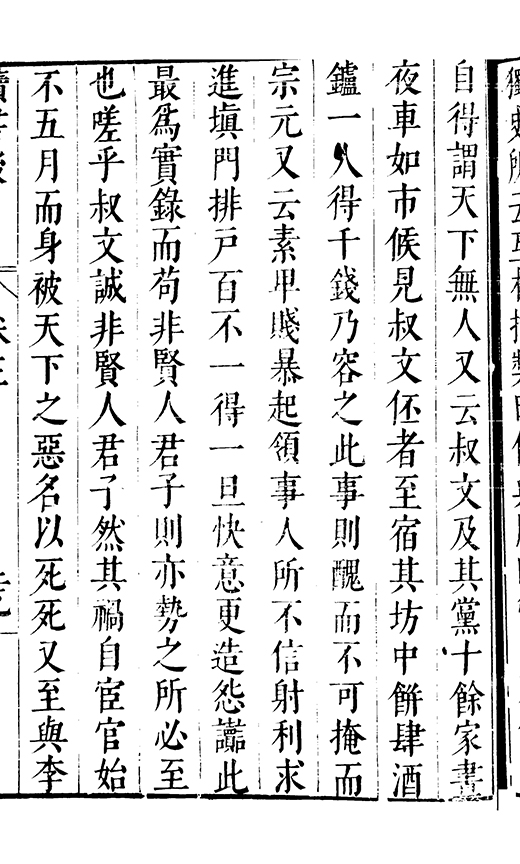 自得謂天下無人又云叔文及其黨十餘家晝
夜車如市候見叔文伾者至宿其坊中餅肆酒
鑪一人得千錢乃容之此事則醜而不可掩而
宗元又云素卑賤暴起領事人所不信射利求
進塡門排戸百不一得一旦快意更造怨讟此
最爲實錄而苟非賢人君子則亦勢之所必至
也嗟乎叔文誠非賢人君子然其禍自宦官始
不五月而身被天下之惡名以死死又至與李